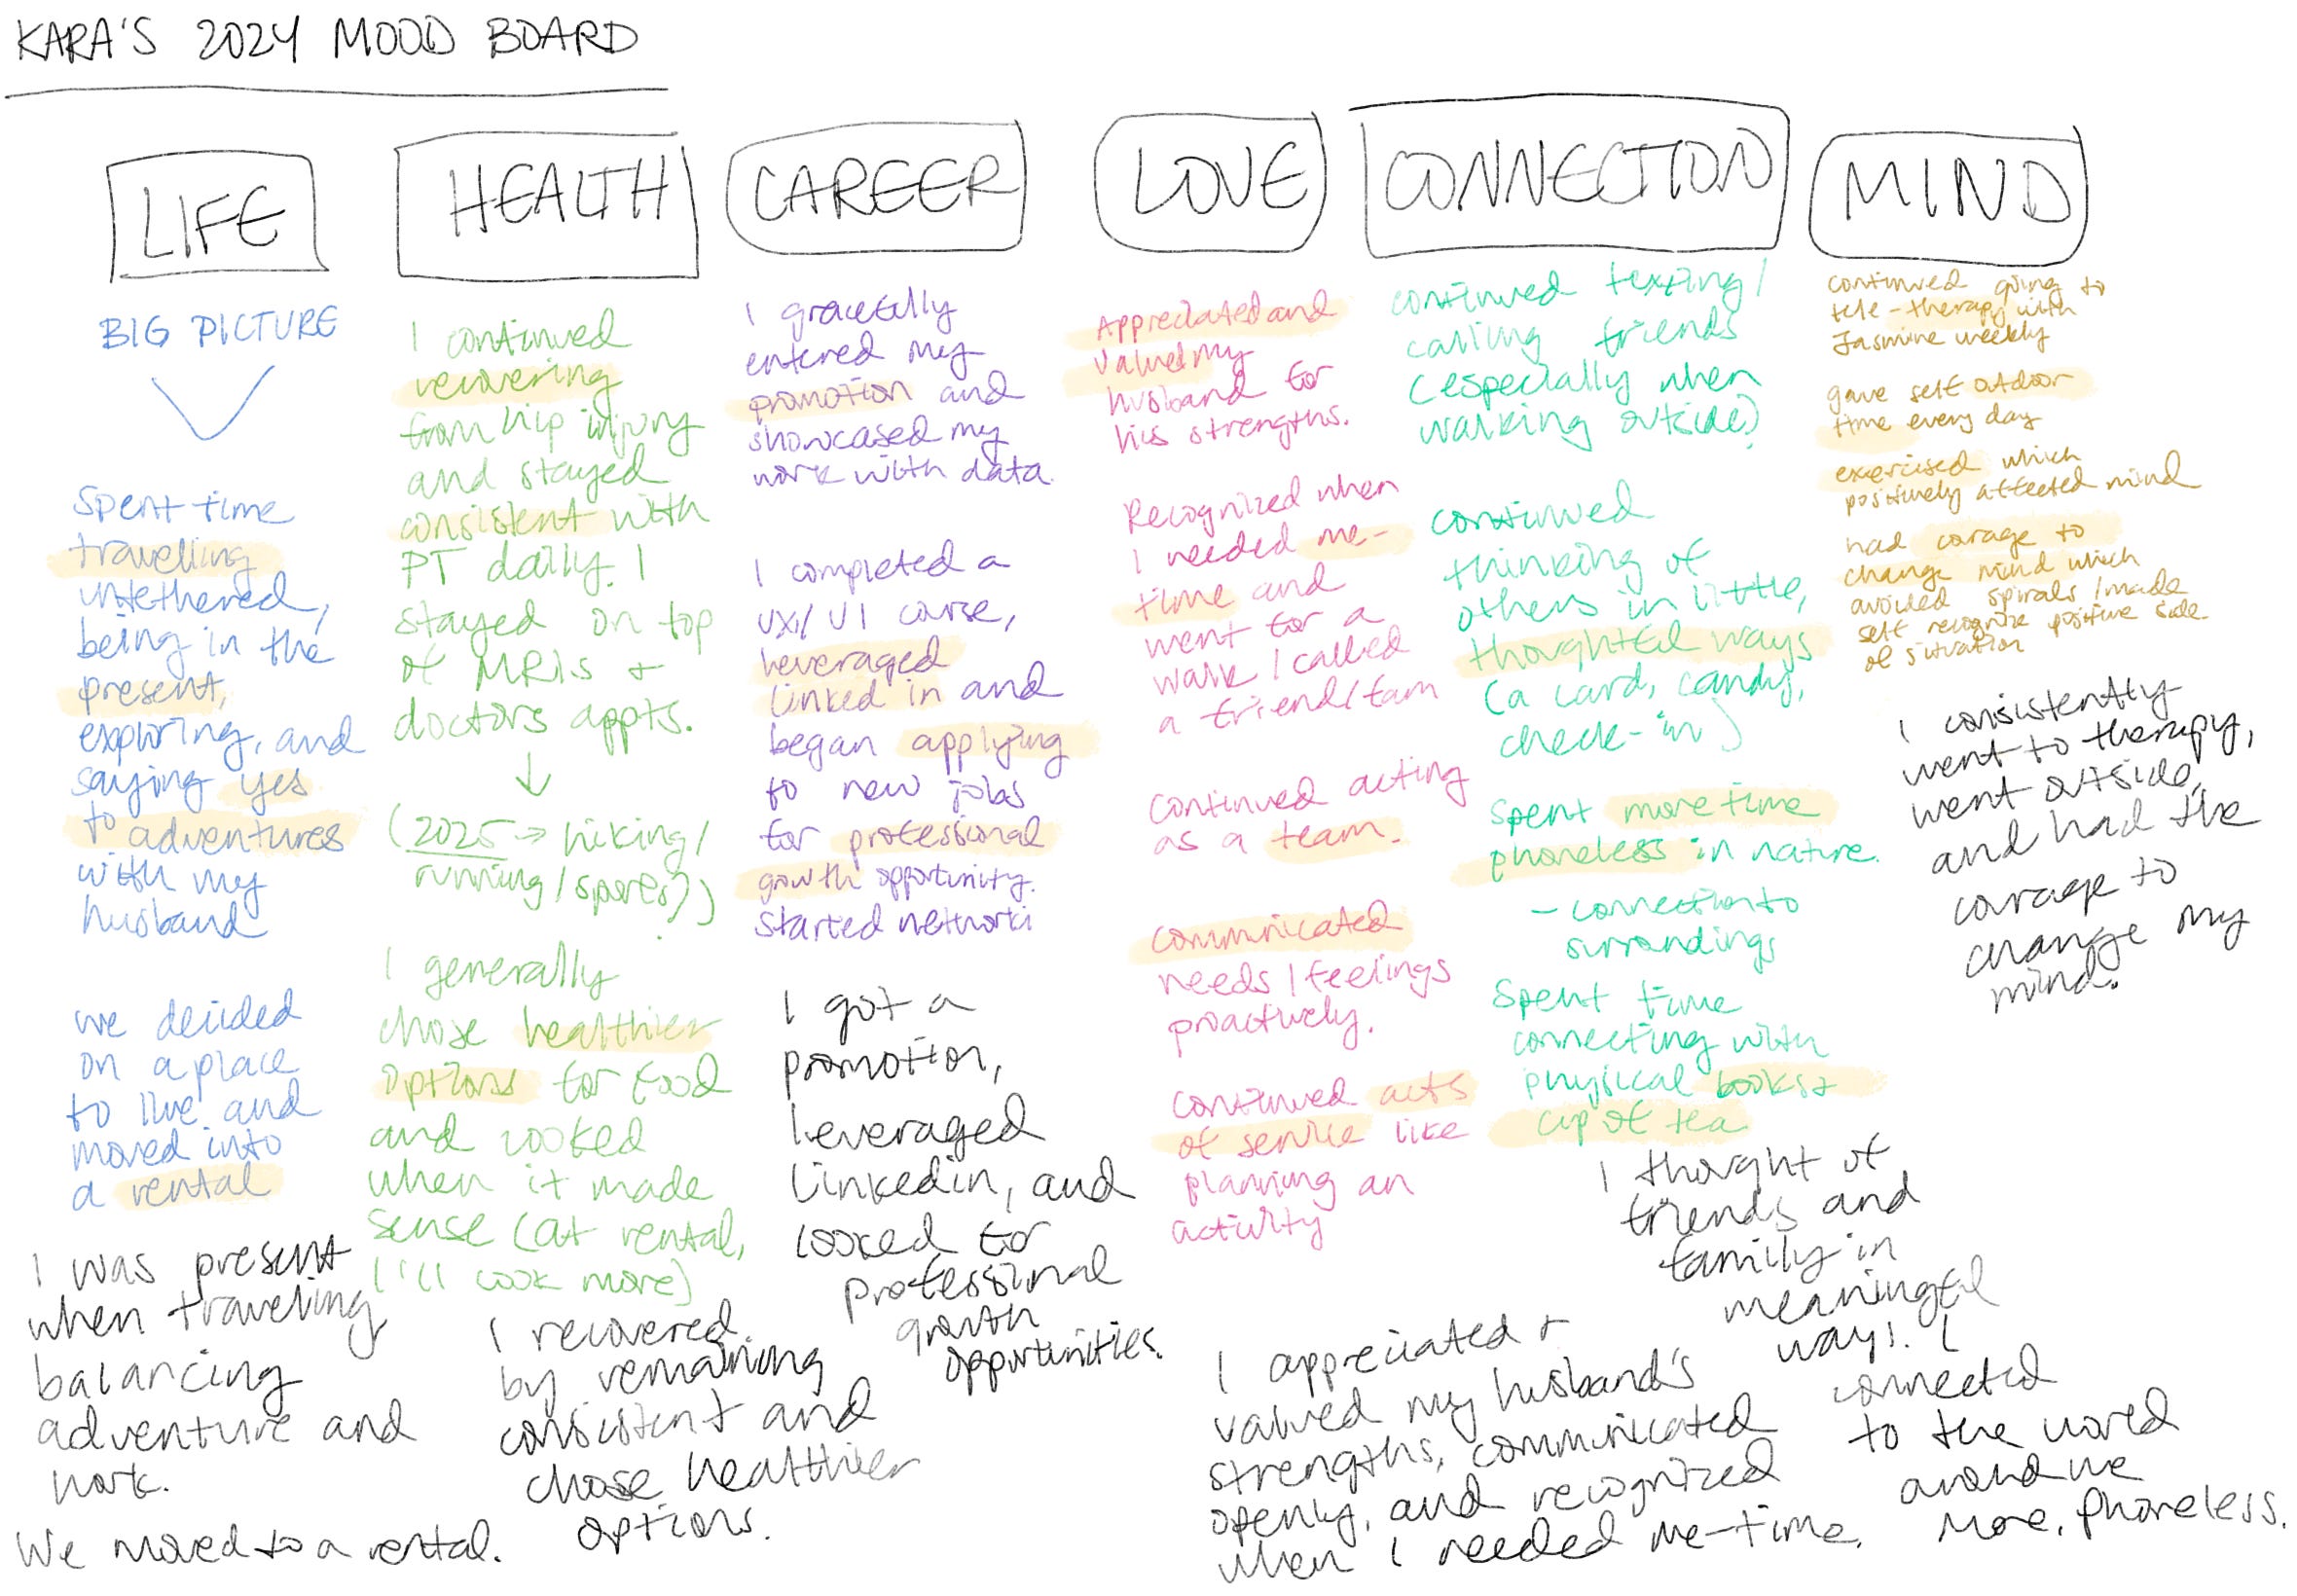 KARA'S 2024 MOOD BOARD
LIFE
BIG PICTURE
Spent time
travelling
untethered,
being in the
present,
exploring, and
saying yes
to adventures
with my
husband
we decided
on a place
to live and
moved into
a rental
I was present
when traveling
balancing
adventure and
work.
We moved to a rental.
HEALTH
I continued
recovering
from hip injury
and stayed
consistent with
PT daily. I
stayed on top
of MRIs +
doctors appts.
(2025 → hiking/
running/spores?)
I generally
chose healthier
options for food
and cooked
when it made
sense (at rental,
I'll cook more)
I recovered
by remaining
consistent and
chose healthier
options.
CAREER
I gracefully
entered my
promotion and
showcased my
work with data.
I completed a
UX/UI course,
leveraged
linked in and
began applying
to new jobs
for professional
growth opportunity.
started networki
I got a
promotion,
leveraged
linkedin, and
looked for
professional
growth
opportunities.
LOVE
Appreciated and
valued my
husband for
his strengths.
Recognized when
I needed me-
time and
went for a
walk/called
a friend/fam
Continued acting
as a team.
communicated
needs/feelings
proactively.
continued acts
of service like
planning an
activity
I appreciated +
valued my husband's
strengths, communicated
openly, and recognized
when I needed me-time.
CONNECTION
continued texting/
calling friends
(especially when
walking outside)
continued
thinking of
others in little,
thoughtful ways
(a card, candy,
check-in)
Spent more time
phoneless in nature.
- connection to
surrondings
Spent time
connecting with
physical books +
cup of tea
I thought of
friends and
family in
meaningful
ways. I
connected
to the world
around me
more, phoneless.
MIND
continued going to
tele-therapy with
Jasmine weekly
gave self outdoor
time every day
exercised which
positively affected mind
had corage to
change mind which
avoided spirals/made
self recognize positive side
of situation
I consistently
went to therapy,
went outside,
and had the
corage to
change my
mind.